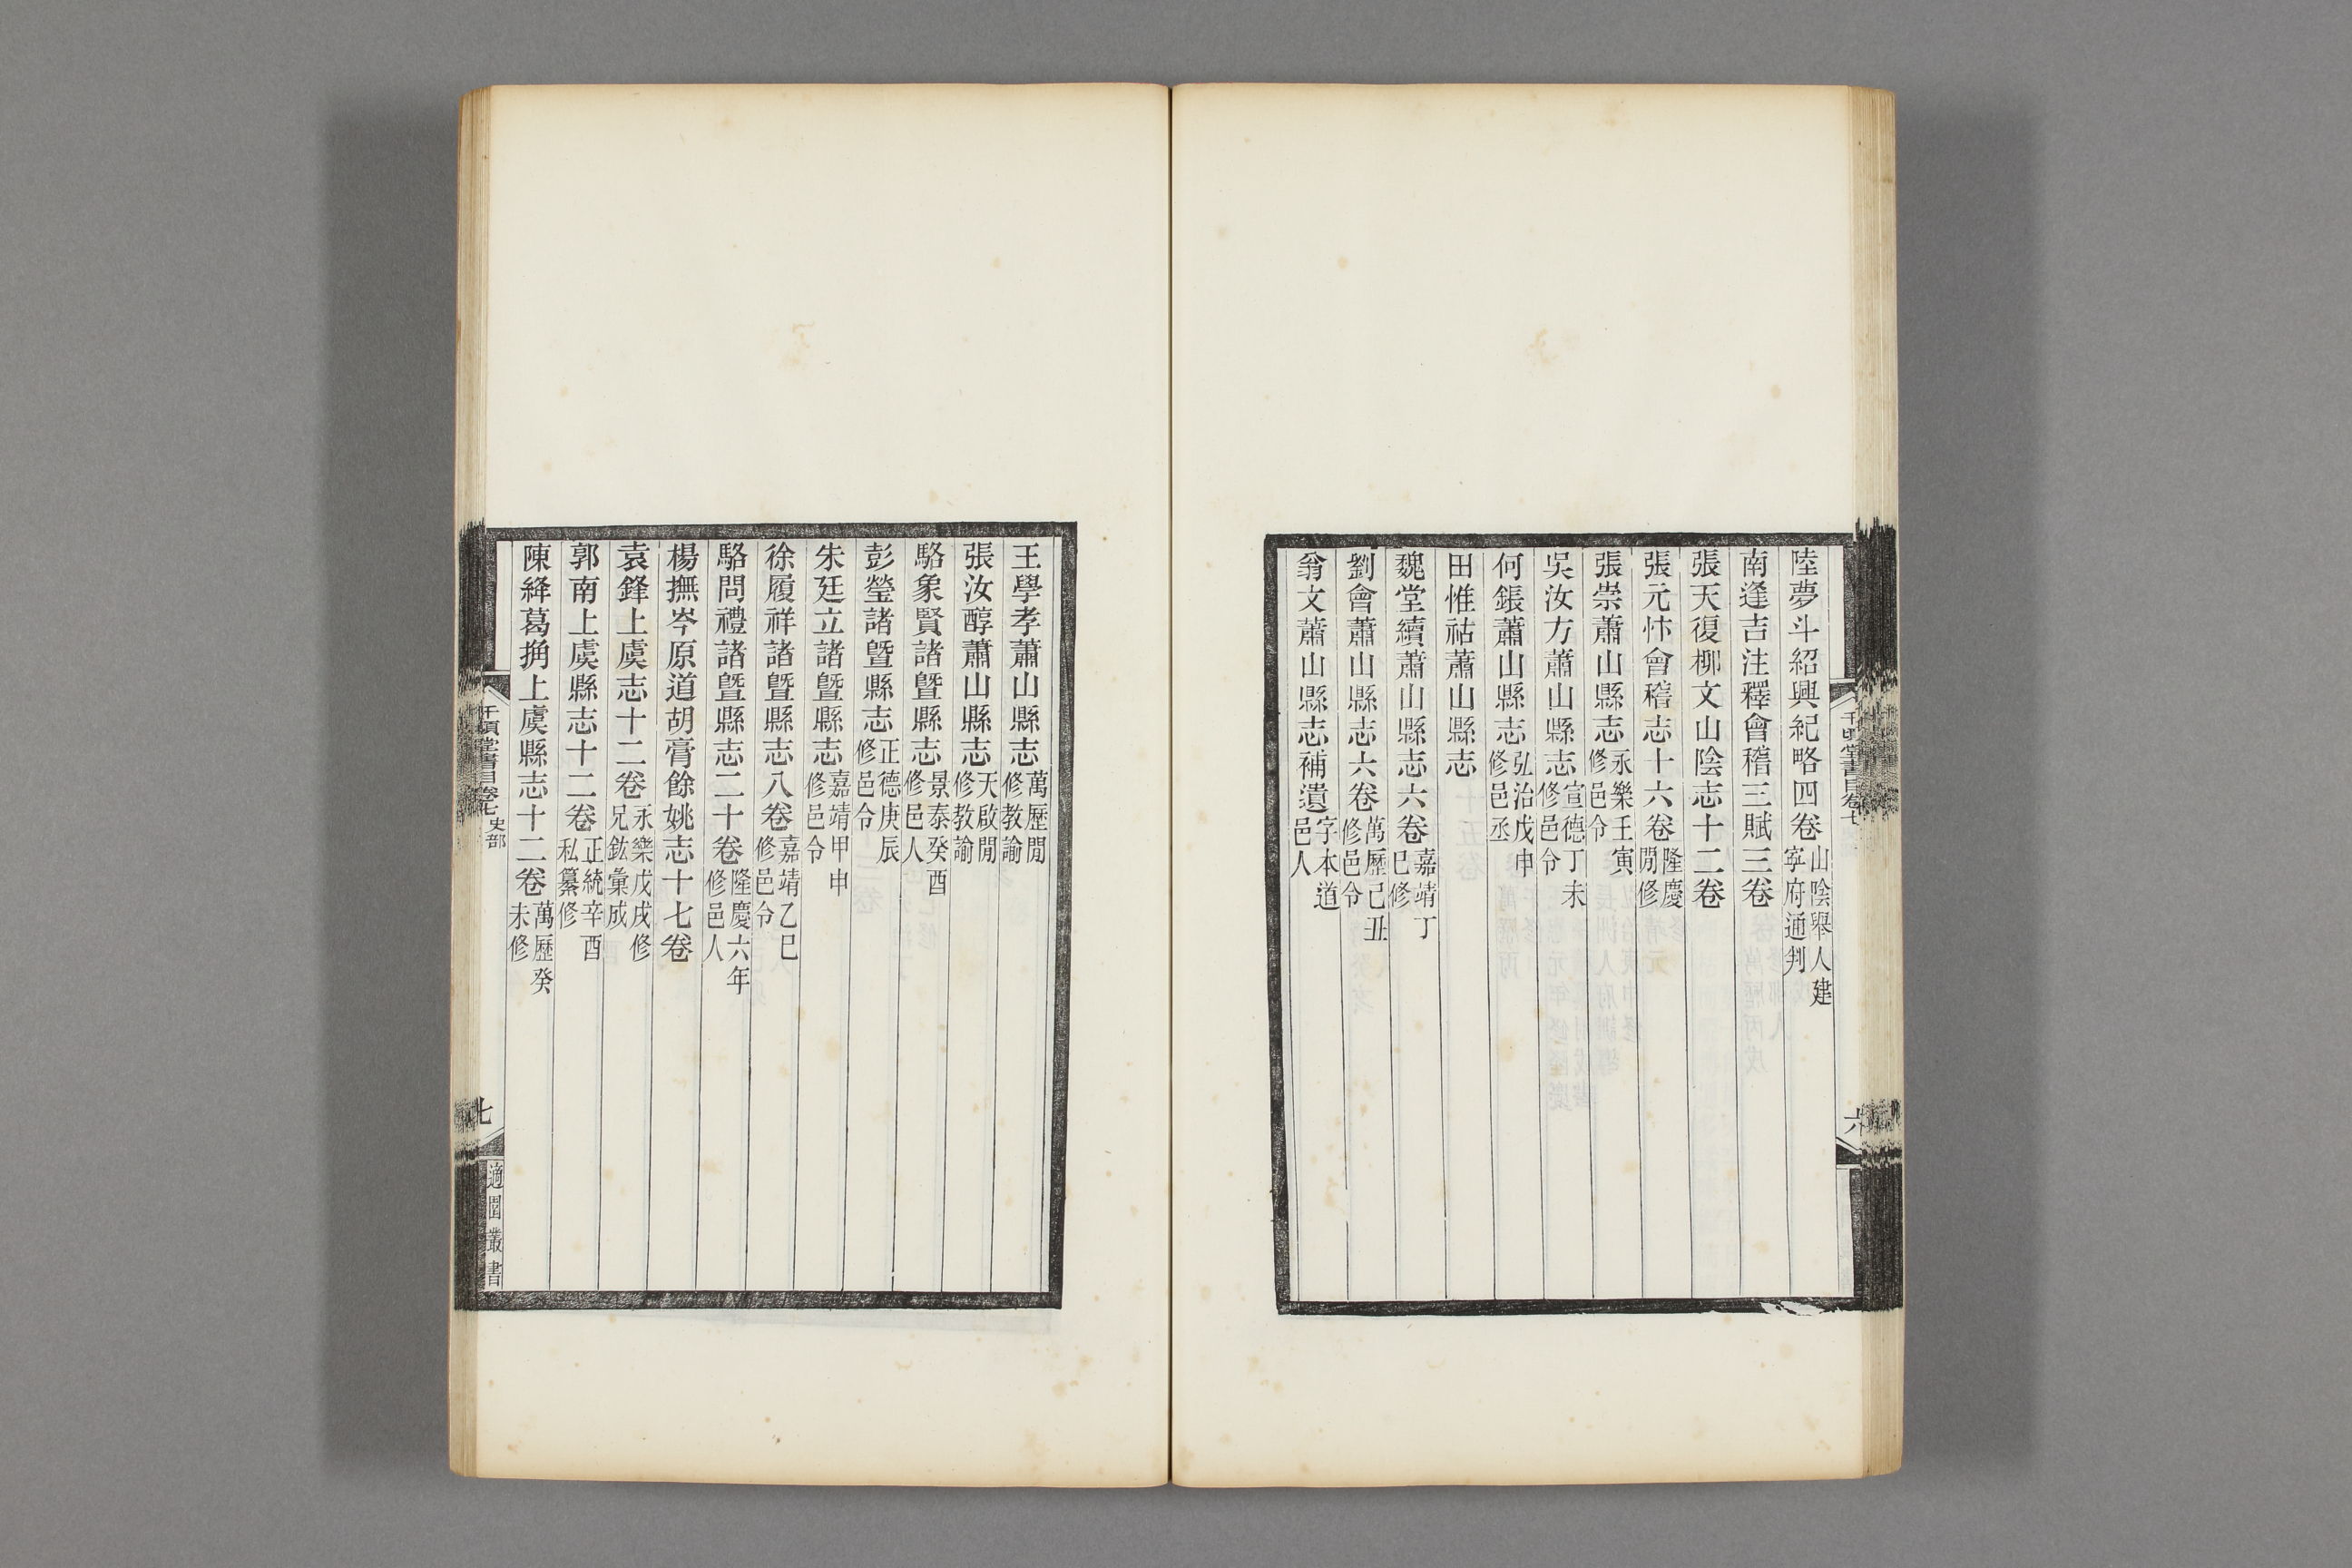 陸夢斗紹興紀略四卷山陰舉人建寧府通判
南逢吉注釋會稽三賦三卷
張天復柳文山陰志十二卷
張元忭會稽志十六卷隆慶閒修
張崇蕭山縣志永樂壬寅修邑令
吳汝方蕭山縣志宣德丁未修邑令
何鋹蕭山縣志弘治戊申修邑丞
田惟祜蕭山縣志
魏堂續蕭山縣志六卷嘉靖丁巳修
劉會蕭山縣志六卷萬歷己丑修邑令
翁文蕭山縣志補遺字本道邑人
王學孝蕭山縣志萬歷閒修教諭
張汝醇蕭山縣志天啟閒修教諭
駱象賢諸暨縣志景泰癸酉修邑人
彭瑩諸暨縣志正德庚辰修邑令
朱廷立諸暨縣志嘉靖甲申修邑令
徐履祥諸暨縣志八卷嘉靖乙巳修邑令
駱問禮諸暨縣志二十卷隆慶六年修邑人
楊撫岑原道胡膏餘姚志十七卷
袁鋒上虞志十二卷永樂戊戌修兄鉉彙成
郭南上虞縣志十二卷正統辛酉私纂修
陳絳葛桷上虞縣志十二卷萬歷癸未修
千頃堂書目卷七 史部
七
適園叢書